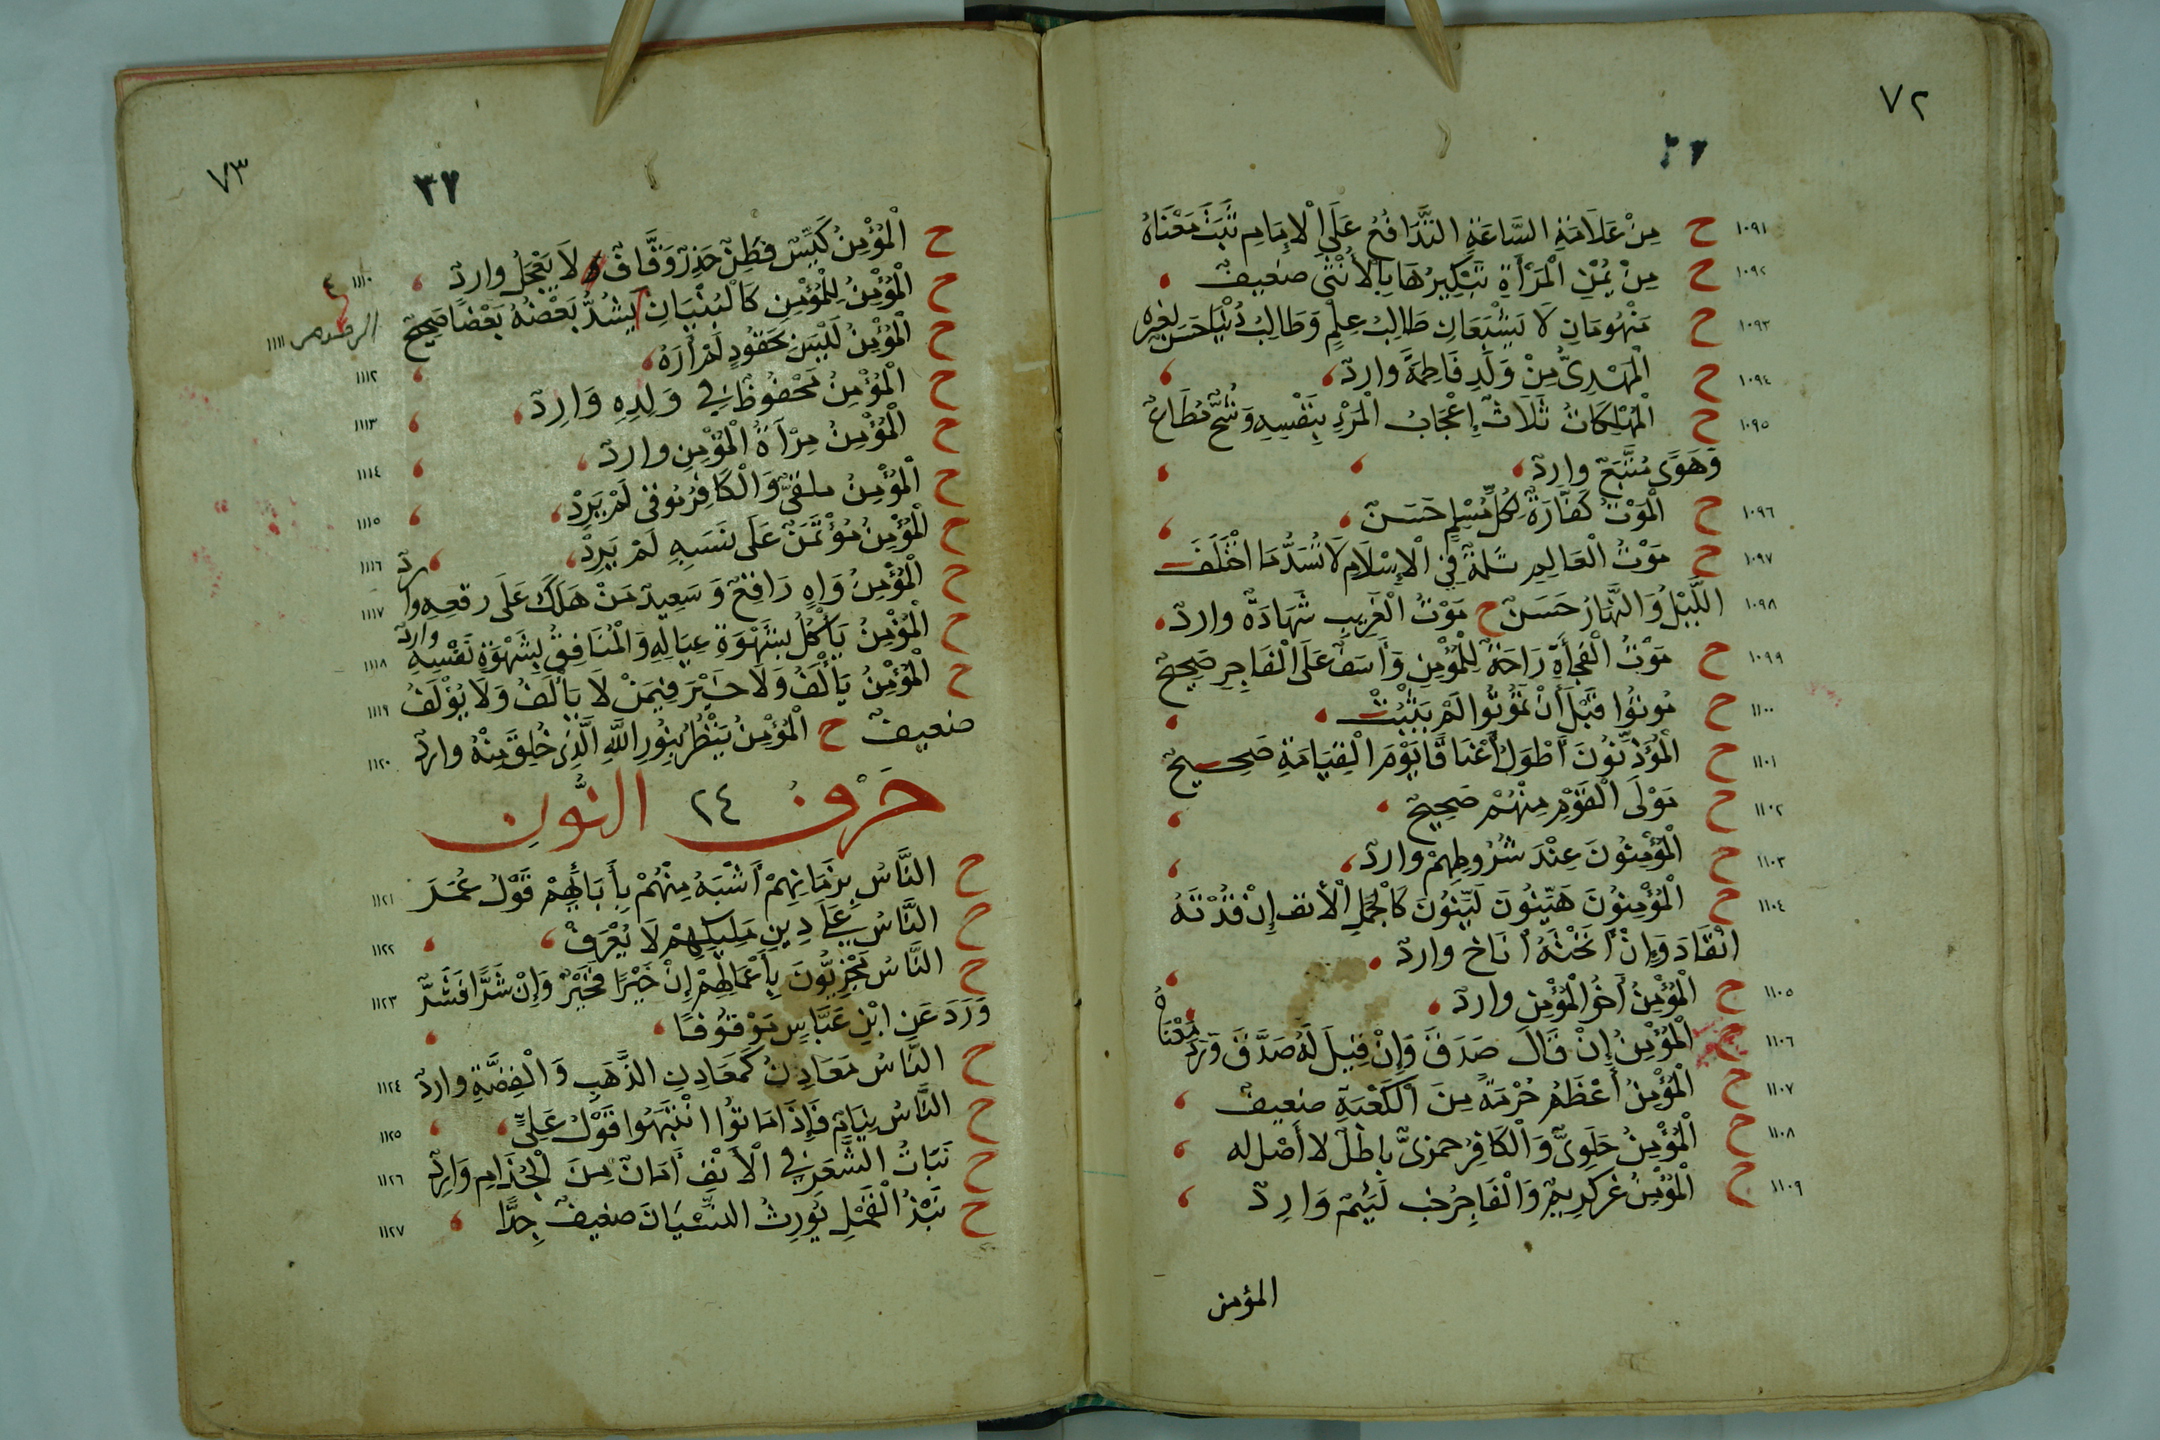 ٧٢
١٠٩١ ح مِنْ عَلَامَةِ السَّاعَةِ التَّدَافُعُ عَلَى الْإِمَامِ ثَبَتَ مَعْنَاهُ
١٠٩٢ ح مِنْ يُمْنِ الْمَرْأَةِ تَبْكِيرُهَا بِالْأُنْثَى ضعيفٌ
١٠٩٣ ح مَنْهُومَانِ لَا يَشْبَعَانِ طَالِبُ عِلْمٍ وَطَالِبُ دُنْيَا حَسَن لغيره
١٠٩٤ ح الْمَهْدِىُّ مِنْ وَلَدِ فَاطِمَةَ واردٌ
١٠٩٥ ح الْمُهْلِكَاتُ ثَلَاثٌ إِعْجَابُ الْمَرْءِ بِنَفْسِهِ وَشُحٌّ مُطَاعٌ
وَهَوًى مُتَّبَعٌ واردٌ
١٠٩٦ ح الْمَوْتُ كَفَّارَةٌ لِكُلِّ مُسْلِمٍ حَسَنٌ
١٠٩٧ ح مَوْتُ الْعَالِمِ ثَلْمَةٌ فِي الْإِسْلَامِ لَا تُسَدُّ مَا اخْتَلَفَ
١٠٩٨ اللَّيْلُ وَالنَّهَارُ حَسَنٌ ح مَوْتُ الْغَرِيبِ شَهَادَةٌ واردٌ
١٠٩٩ ح مَوْتُ الْفَجْأَةِ رَاحَةٌ لِلْمُؤْمِنِ وَأَسَفٌ عَلَى الْفَاجِرِ صَحِيحٌ
١١٠٠ ح مُوتُوا قَبْلَ أَنْ تَمُوتُوا لَمْ يَثْبُتْ
١١٠١ ح الْمُؤَذِّنُونَ أَطْوَلُ أَعْنَاقًا يَوْمَ الْقِيَامَةِ صَحِيحٌ
١١٠٢ ح مَوْلَى الْقَوْمِ مِنْهُمْ صَحِيحٌ
١١٠٣ ح الْمُؤْمِنُونَ عِنْدَ شُرُوطِهِمْ واردٌ
١١٠٤ ح الْمُؤْمِنُونَ هَيِّنُونَ لَيِّنُونَ كَالْجَمَلِ الْأنف إِنْ قُدْتَهُ
انْقَادَ وَإِنْ أَنَخْتَهُ أَنَاخَ واردٌ
١١٠٥ ح الْمُؤْمِنُ أَخُو الْمُؤْمِنِ واردٌ
١١٠٦ ح الْمُؤْمِنُ إِنْ قَالَ صَدَقَ وَإِنْ قِيلَ لَهُ صَدَّقَ وَرَدَ مَعْنَاهُ
١١٠٧ ح الْمُؤْمِنُ أَعْظَمُ حُرْمَةً مِنَ الْكَعْبَةِ ضعيفٌ
١١٠٨ ح الْمُؤْمِنُ حَلَوِىٌّ وَالْكَافِرُ حمزىٌّ باطلٌ لا أَصْل له
١١٠٩ ح الْمُؤْمِنُ غر كَرِيمٌ وَالْفَاجِرُ خب لَئِيمٌ وَارِدٌ
المؤمن
٧٣
٣٧
١١١٠ ح الْمُؤْمِنُ كَيِّسٌ فَطِنٌ حَذِرٌ وَقَّافٌ لَا يَعْجَلُ واردٌ
١١١١ ح الْمُؤْمِنُ لِلْمُؤْمِنِ كَالْبُنْيَانِ يَشُدُّ بَعْضُهُ بَعْضًا صَحِيحٌ
١١١٢ ح الْمُؤْمِنُ لَيْسَ بِحَقُودٍ لَمْ أَرَهُ
١١١٣ ح الْمُؤْمِنُ مَحْفُوظٌ فِي وَلِدِهِ وَارِدٌ
١١١٤ ح الْمُؤْمِنُ مِرْآةُ الْمُؤْمِنِ واردٌ
١١١٥ ح الْمُؤْمِنُ ملقىٌّ وَالْكَافِرُ موقى لَمْ يَرِدْ
١١١٦ ح الْمُؤْمِنُ مُؤْتَمَنٌ عَلَى نَسَبِهِ لَمْ يَرِدْ
١١١٧ ح الْمُؤْمِنُ وَاهٍ رَاقِعٌ وَسَعِيدٌ مَنْ هَلَكَ عَلَى رقعِهِ واردٌ
١١١٨ ح الْمُؤْمِنُ يَأْكُلُ بِشَهْوَةِ عِيَالِهِ وَالْمُنَافِقُ بِشَهْوَةِ نَفْسِهِ واردٌ
١١١٩ ح الْمُؤْمِنُ يَأْلَفُ وَلَا خَيْرَ فِيمَنْ لَا يَأْلَفُ وَلَا يُؤْلَفُ
١١٢٠ ضعيفٌ ح الْمُؤْمِنُ يَنْظُرُ بِنُورِ اللَّهِ الَّذِي خُلِقَ مِنْهُ واردٌ
حَرْفُ ٢٤ النُّونِ
١١٢١ ح النَّاسُ بِزَمَانِهِمْ أَشْبَهُ مِنْهُمْ بِأَبَائِهِمْ قَوْلُ عُمَرَ
١١٢٢ ح النَّاسُ عَلَى دِينِ مَلِيكِهِمْ لَا يُعْرَفْ
١١٢٣ ح النَّاسُ مَجْزِيُّونَ بِأَعْمَالِهِمْ إِنْ خَيْرًا فَخَيْرٌ وَإِنْ شَرًّا فَشَرٌّ
وَرَدَ عَنِ ابْنِ عَبَّاسٍ مَوْقُوفًا
١١٢٤ ح النَّاسُ مَعَادِنُ كَمَعَادِنِ الذَّهَبِ وَالْفِضَّةِ واردٌ
١١٢٥ ح النَّاسُ نِيَامٌ فَإِذَا مَاتُوا انْتَبَهُوا قَوْلُ عَلِىٍّ
١١٢٦ ح نَبَاتُ الشَّعَرِ فِي الْأَنْفِ أَمَانٌ مِنَ الْجُذَامِ وَارِدٌ
١١٢٧ ح نَبْذُ الْقَمْلِ يُورِثُ النِّسْيَانَ ضعيفٌ جِدًّا